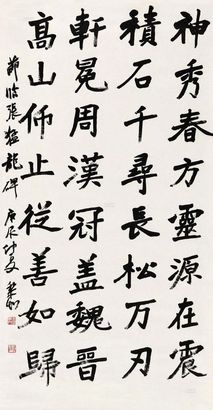 神秀春方靈源在震
積石千尋長松万刃
軒冕周漢冠盖魏晉
高山仰止從善如歸
節臨張猛龍碑 庚辰仲夏